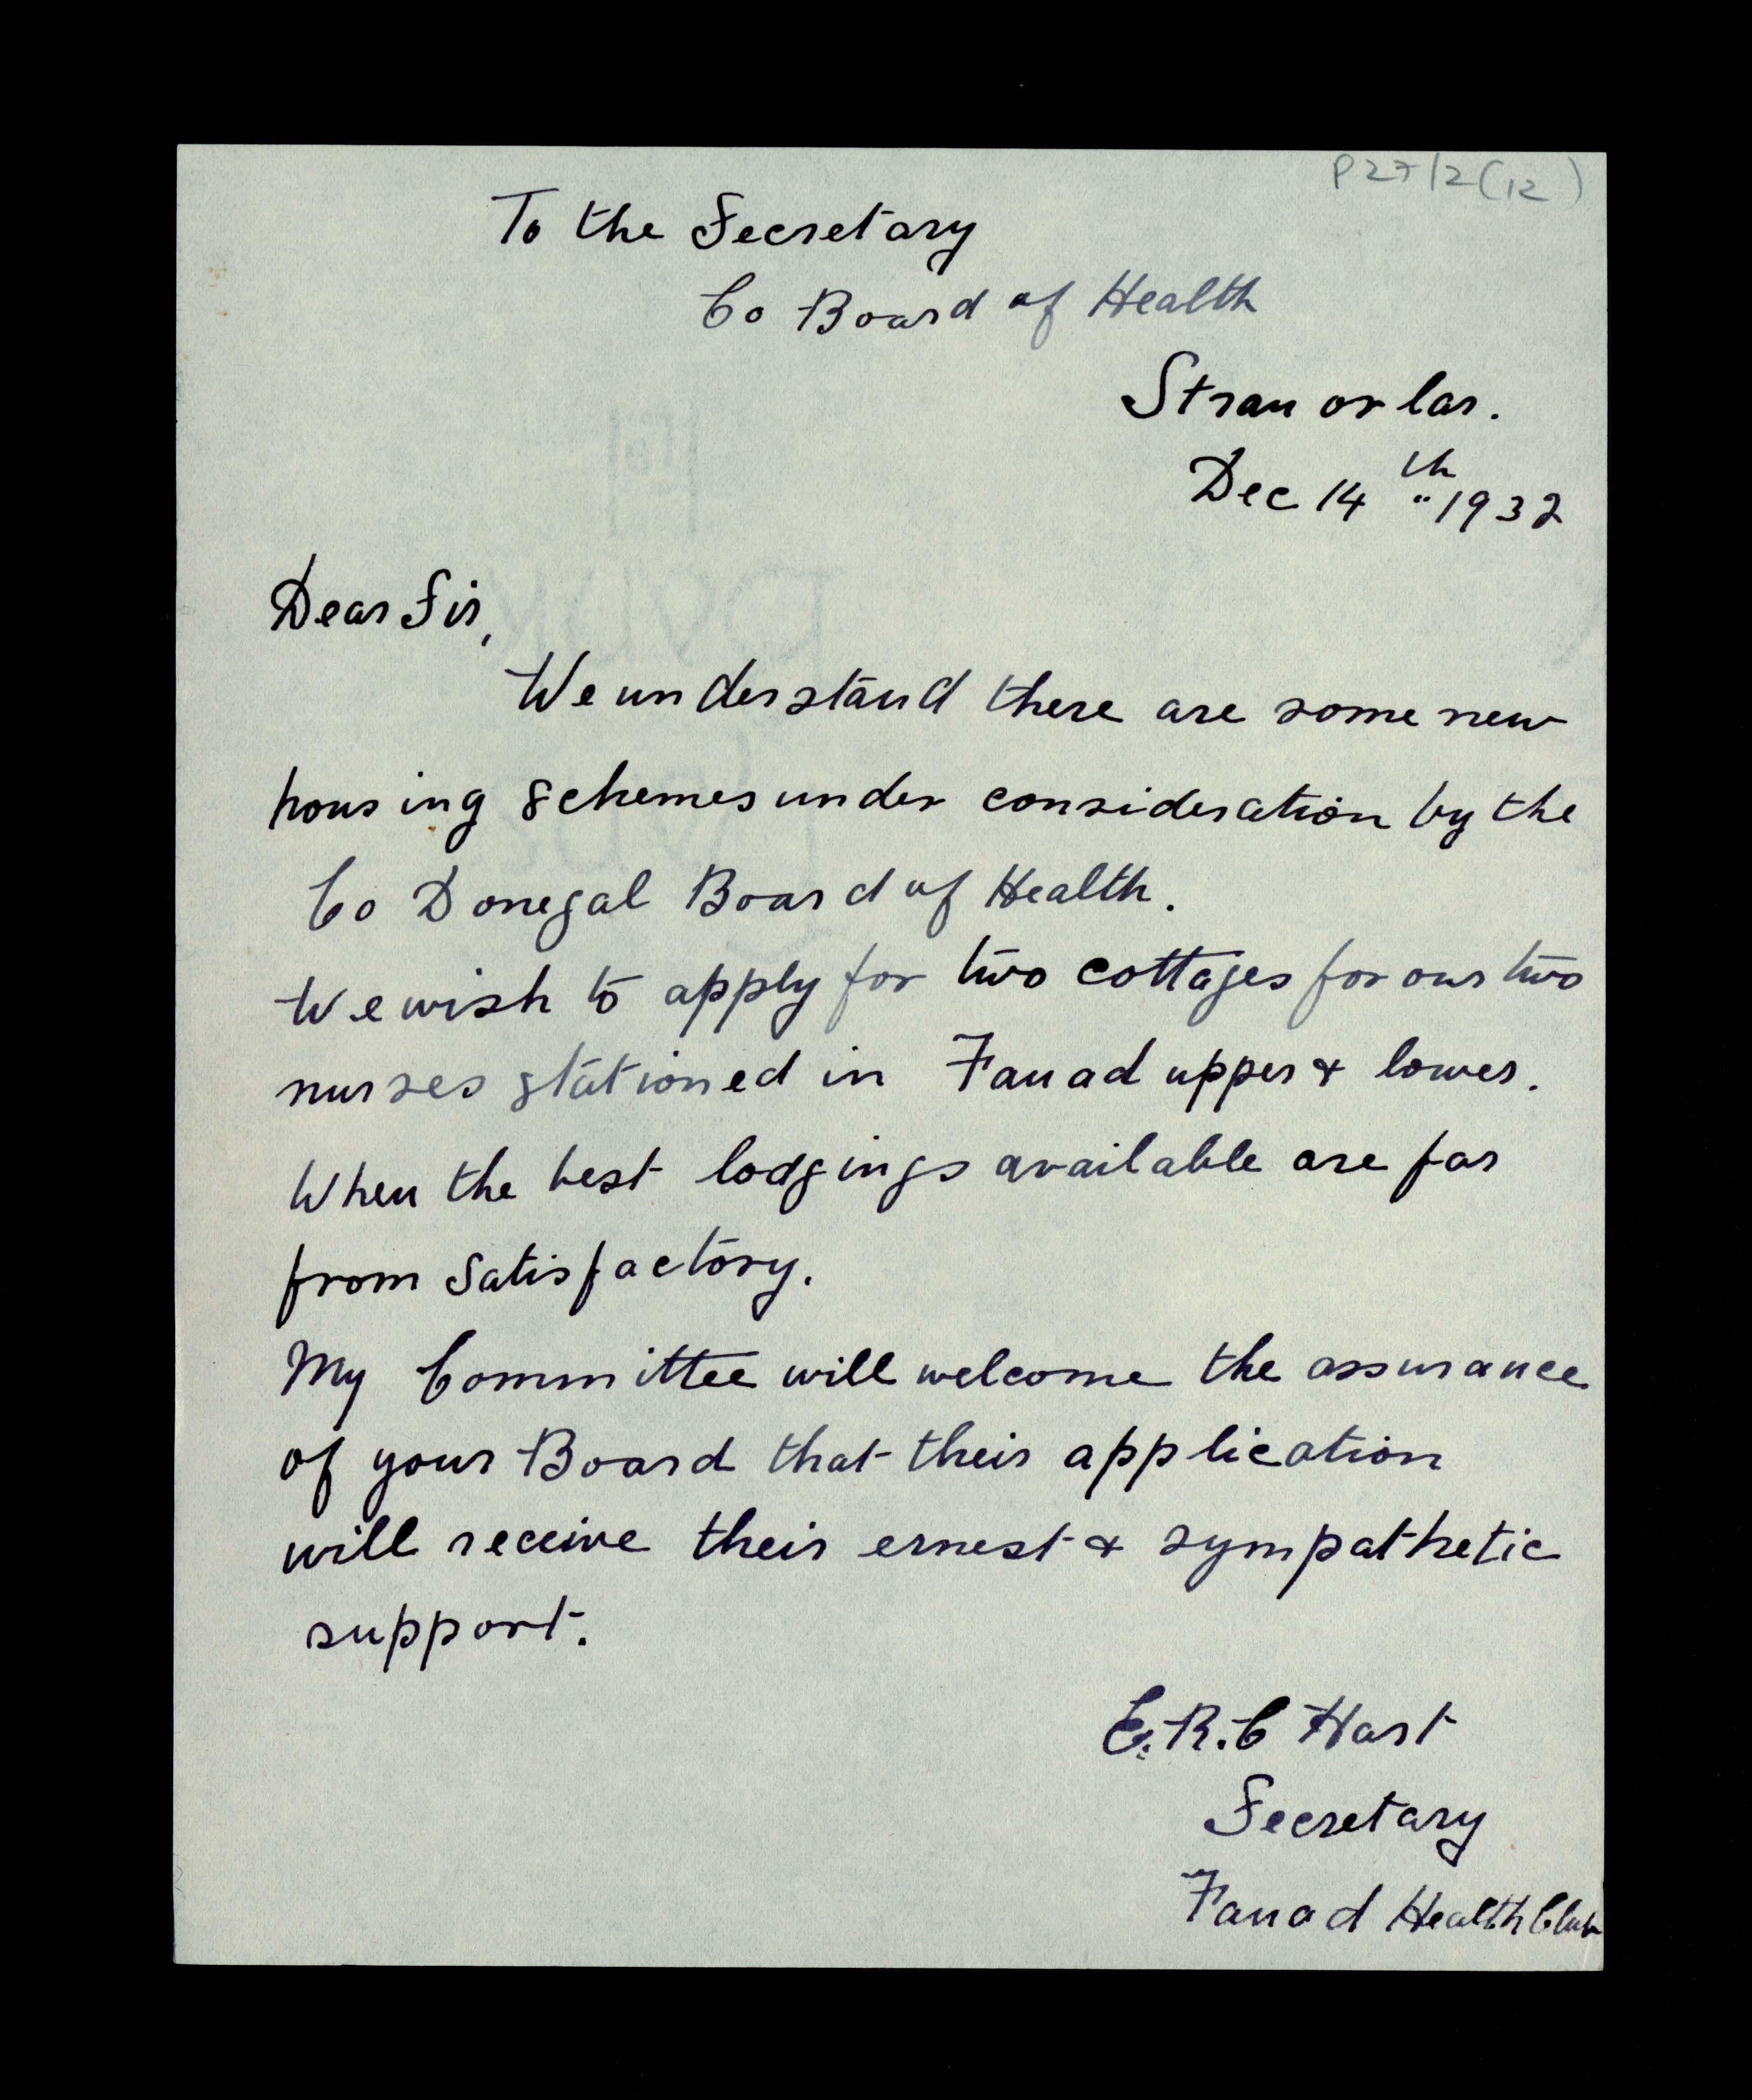 P27/2(12)
To the Secretary
Co Board of Health
Stranorlar.
Dec 14th 1932
Dear Sir,
We understand there are some new
housing schemes under consideration by the
Co Donegal Board of Health.
We wish to apply for two cottages for our two
nurses stationed in Fanad upper & lower.
When the best lodgings available are far
from satisfactory.
My Committee will welcome the assurance
of your Board that their application
will receive their ernest & sympathetic
support.
E.R.C Hart
Secretary
Fanad Health Club